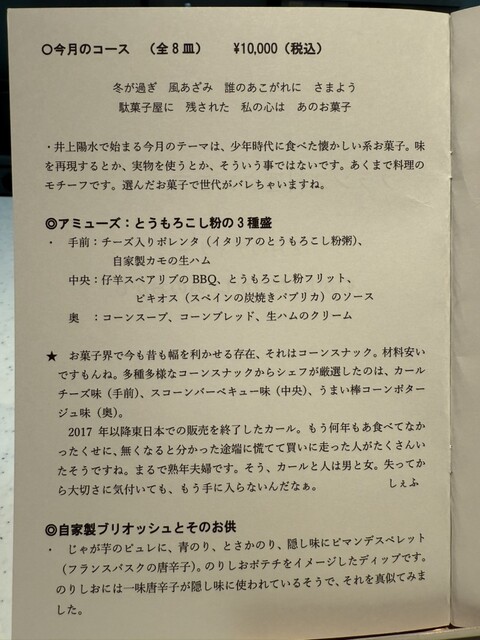 〇今月のコース　（全８皿）　　¥10,000（税込）
冬が過ぎ　風あざみ　誰のあこがれに　さまよう
駄菓子屋に　残された　私の心は　あのお菓子
・井上陽水で始まる今月のテーマは、少年時代に食べた懐かしい系お菓子。味
を再現するとか、実物を使うとか、そういう事ではないです。あくまで料理の
モチーフです。選んだお菓子で世代がバレちゃいますね。
◎アミューズ：とうもろこし粉の３種盛
・　手前：チーズ入りポレンタ（イタリアのとうもろこし粉粥）、
自家製カモの生ハム
中央：仔羊スペアリブのBBQ、とうもろこし粉フリット、
ピキオス（スペインの炭焼きパプリカ）のソース
奥　：コーンスープ、コーンブレッド、生ハムのクリーム
★　お菓子界で今も昔も幅を利かせる存在、それはコーンスナック。材料安い
ですもんね。多種多様なコーンスナックからシェフが厳選したのは、カール
チーズ味（手前）、スコーンバーベキュー味（中央）、うまい棒コーンポター
ジュ味（奥）。
2017 年以降東日本での販売を終了したカール。もう何年もあ食べてなか
ったくせに、無くなると分かった途端に慌てて買いに走った人がたくさんい
たそうですね。まるで熟年夫婦です。そう、カールと人は男と女。失ってか
ら大切さに気付いても、もう手に入らないんだなぁ。　　　　　しぇふ
◎自家製ブリオッシュとそのお供
・　じゃが芋のピュレに、青のり、とさかのり、隠し味にピマンデスペレット
（フランスバスクの唐辛子）。のりしおポテチをイメージしたディップです。
のりしおには一味唐辛子が隠し味に使われているそうで、それを真似てみま
した。